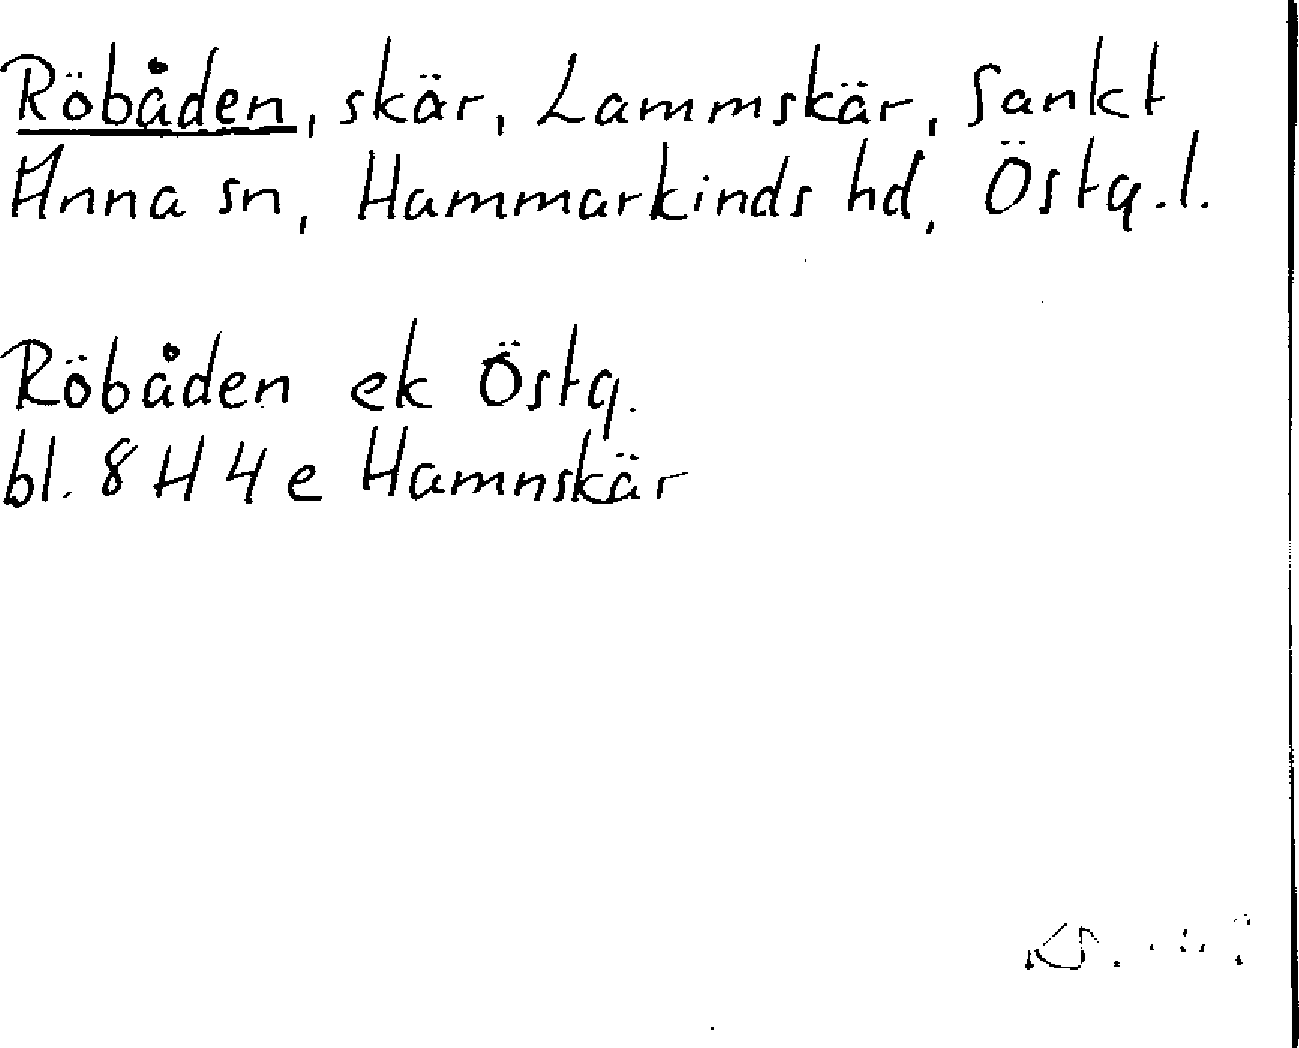 Röbåden, skär, Lammskär, Sankt
Anna sn, Hammarkinds hd, Östg.l.
Röbåden ek Östg.
bl. 8 H 4 e Hamnskär